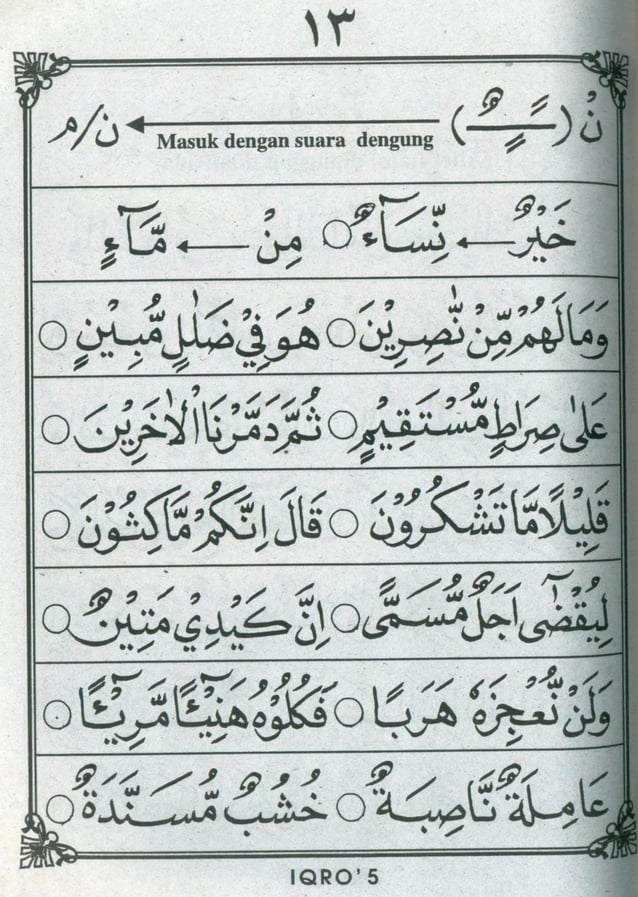 ١٣
نْ (ــًــٍــٌ) ← ن/م
Masuk dengan suara dengung
خَيْرٌ ← نِّسَآءٌ ○ مِنْ ← مَّآءٍ
وَمَالَهُمْ مِّنْ نّٰصِرِيْنَ ○ هُوَفِيْ ضَلٰلٍ مُّبِيْنٍ ○
عَلٰى صِرَاطٍ مُّسْتَقِيْمٍ ○ ثُمَّ دَمَّرْنَا الْاٰخَرِيْنَ ○
قَلِيْلًا مَّا تَشْكُرُوْنَ ○ قَالَ اِنَّكُمْ مَّاكِثُوْنَ ○
لِيُقْضٰٓى اَجَلٌ مُّسَمًّى ○ اِنَّ كَيْدِيْ مَتِيْنٌ ○
وَلَنْ نُّعْجِزَهٗ هَرَبًا ○ فَكُلُوْهُ هَنِيْٓئًا مَّرِيْٓئًا ○
عَامِلَةٌ نَّاصِبَةٌ ○ خُشُبٌ مُّسَنَّدَةٌ ○
IQRO' 5